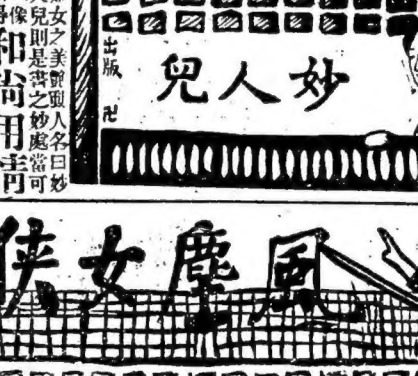 妙人兒
出版
女之美艷動人名曰妙
兒則是書之妙處當可
像
和尚用情
風塵女俠